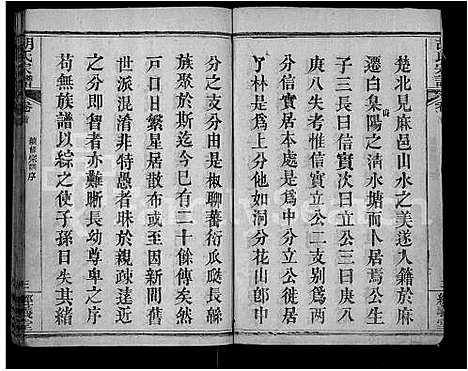 楚北見麻邑山水之美遂入籍於麻
遷白臬陽之清水塘而卜居焉生
子三長曰信實次曰立公三曰庚八
庚八失考惟信實立公二支別爲兩
分信實居本處是爲中分立公徙居
丫林是爲上分他如洞分花山郎中
分之支由是而分椒聊蕃衍瓜瓞長緜
族聚於斯迄今已有二十餘傳矣然
戸口日繁星居散布或至因新間舊
世派混淆非特愚者昧於親疎遠近
之分即智者亦難晰長幼尊卑之序
苟無族譜以綜之使子孫日失其緒
胡氏宗譜
卷首
續修宗譜序
三